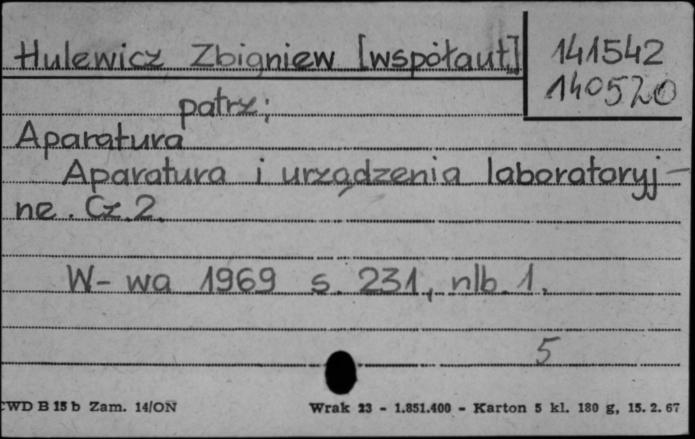 Hulewicz Zbigniew [współaut] 141542
140520
patrz;
Aparatura
Aparatura i urządzenia laboratoryj-
ne. Cz. 2.
W-wa 1969 s. 231, nlb. 1.
5
CWD B 15 b Zam. 14/ON Wrak 23 - 1.851.400 - Karton 5 kl. 180 g, 15. 2. 67